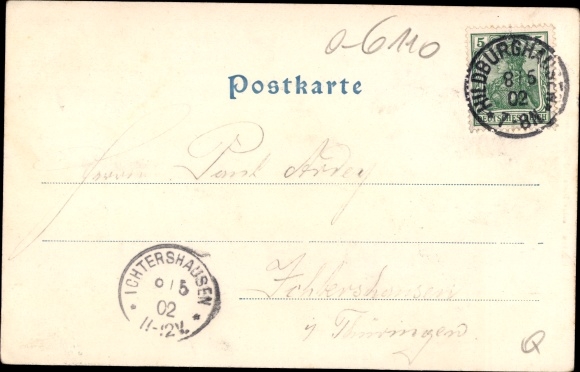 0-6110
Postkarte
5
HILDBURGHAUSEN
8 5
02
7-8N
DEUTSCHES REICH
Herrn Paul Ardey
ICHTERSHAUSEN
9/5
02
11-12V.
Ichtershausen
i/ Thüringen
Q